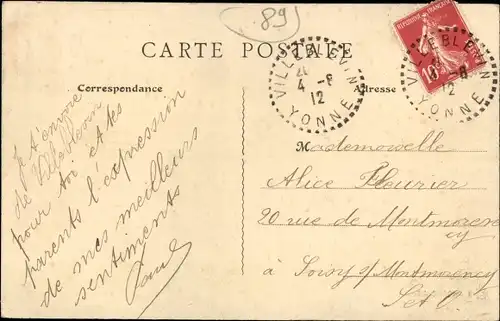 89
CARTE POSTALE
Correspondance
Adresse
VILLEBLEVIN
4 -8
12
YONNE
REPUBLIQUE FRANÇAISE
10
VILLEBLEVIN
-8
12
YONNE
Je t'envoie
de Villeblevin
pour toi et tes
parents l'expression
de mes meilleurs
sentiments
Mademoiselle
Alice Fleurier
20 rue de Montmoren
cy
à Soisy s/Montmorency
S et O.